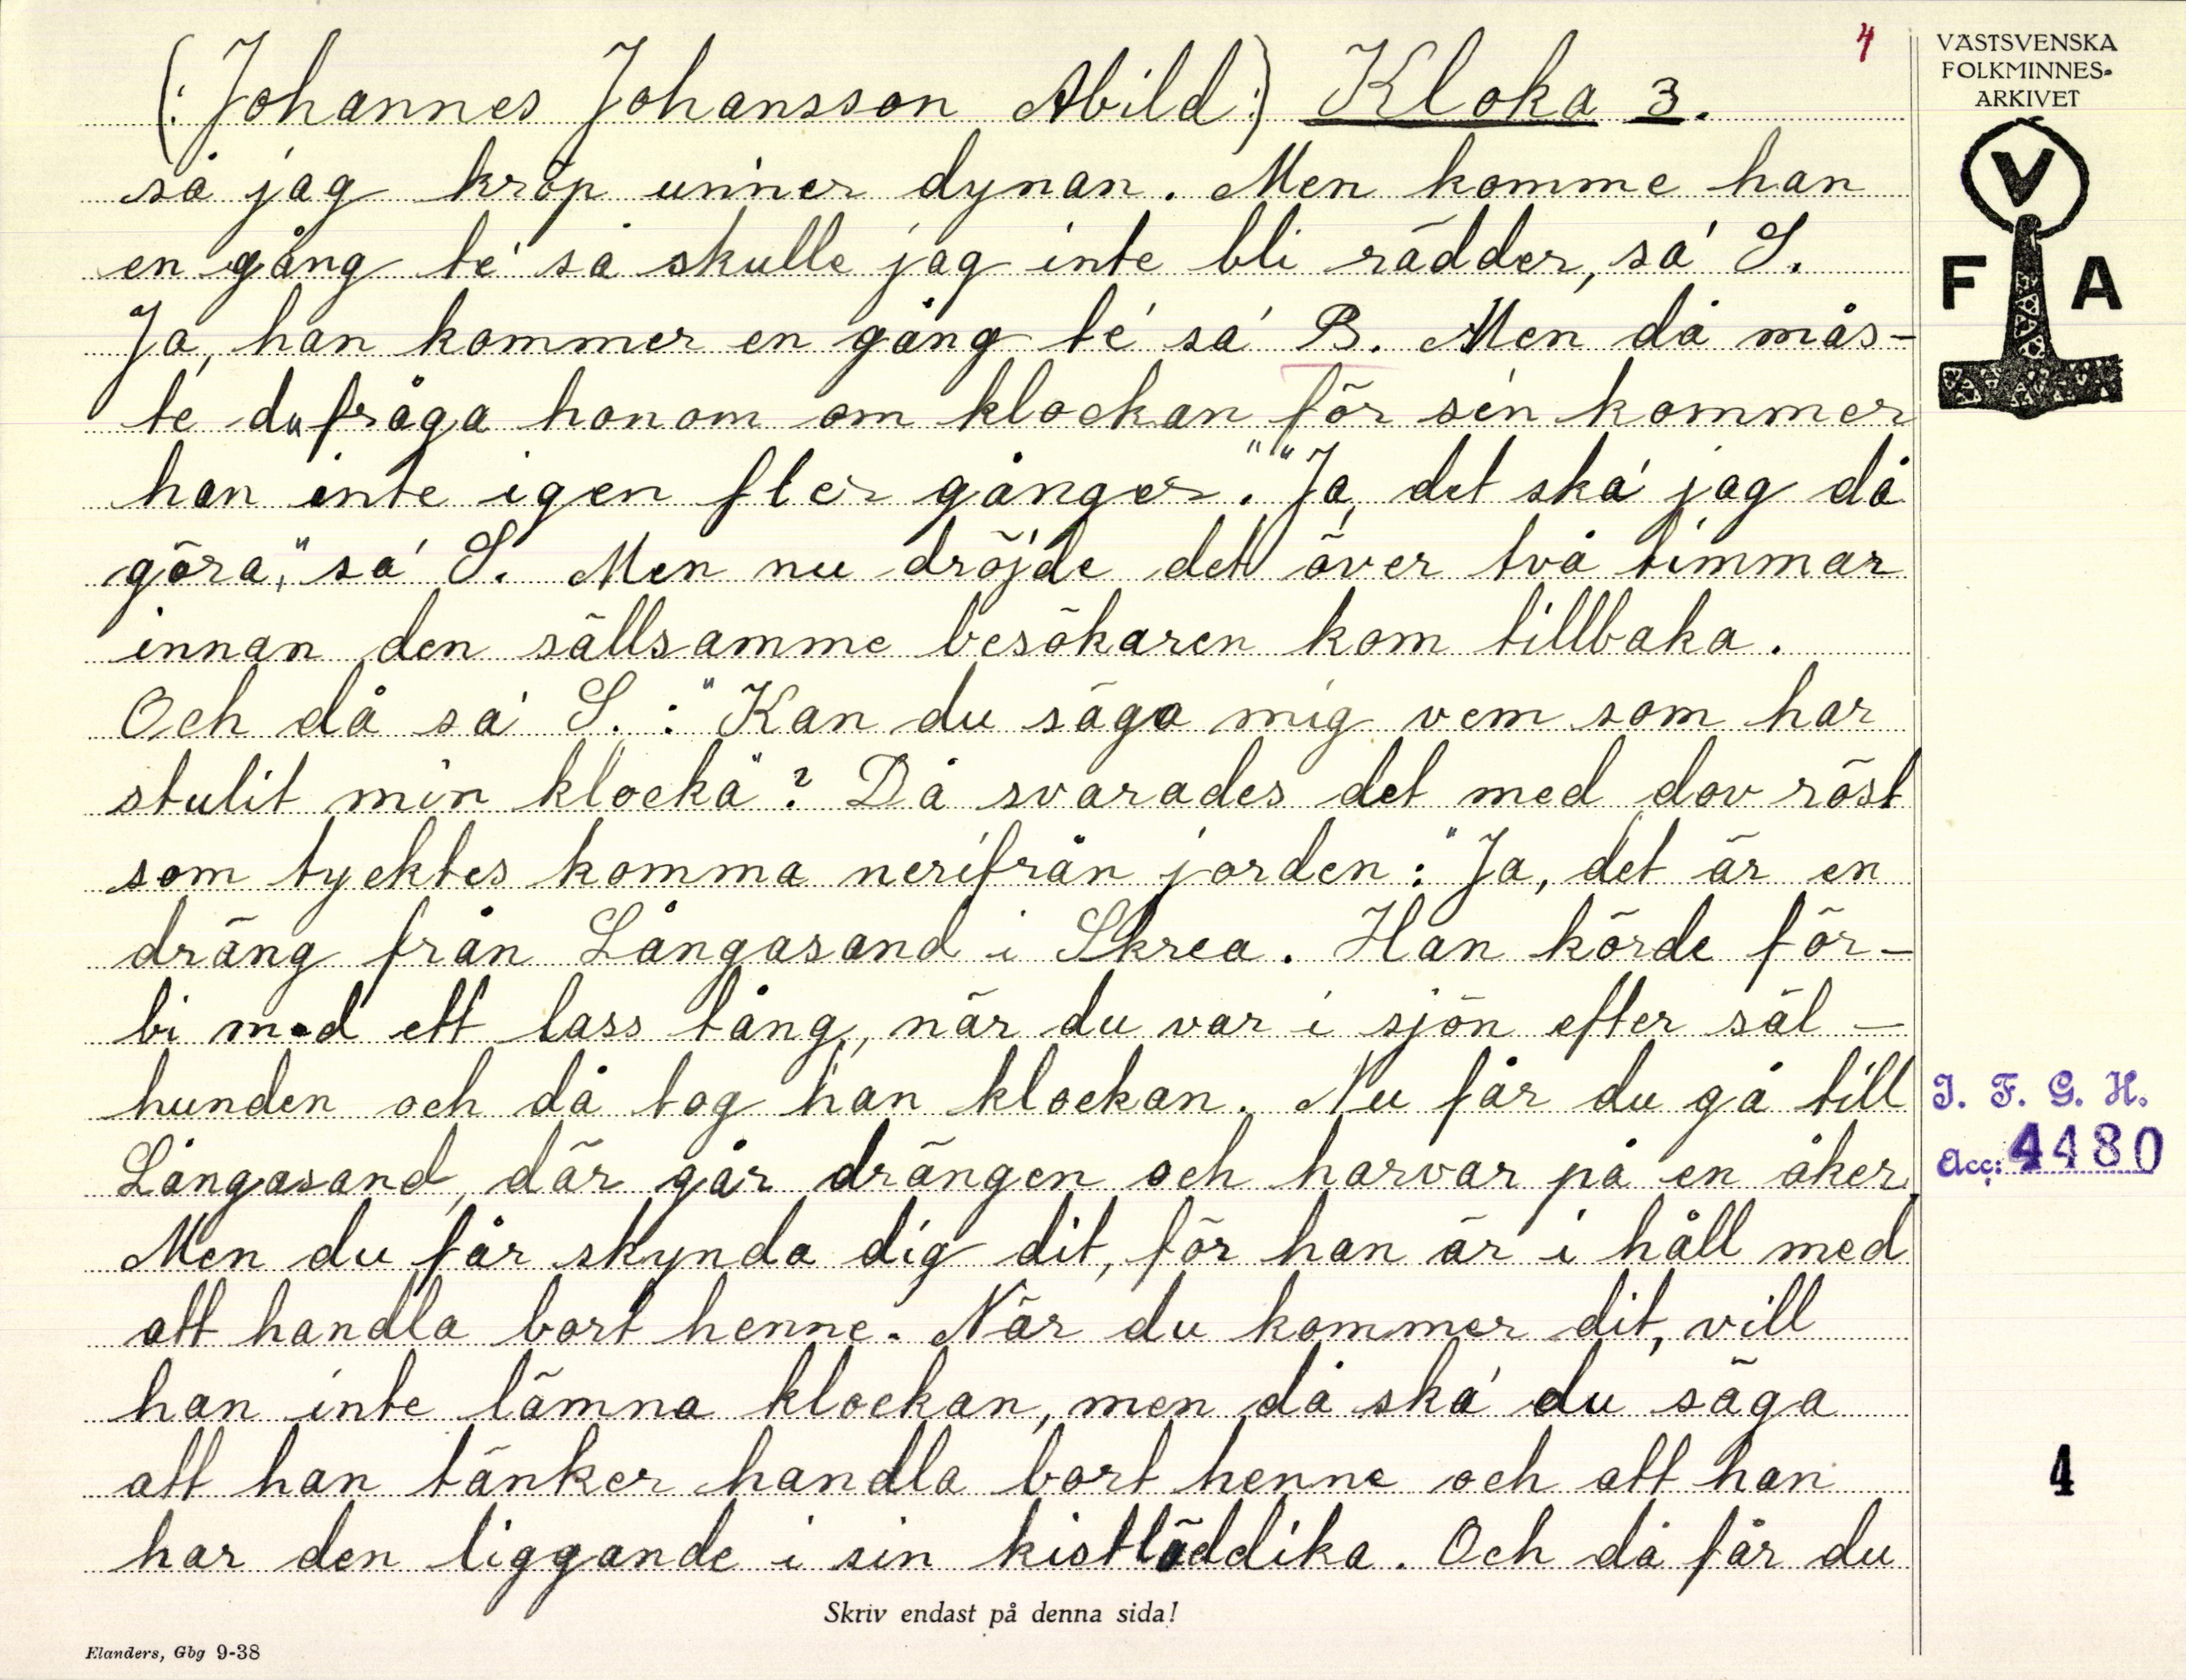 4
VÄSTSVENSKA
FOLKMINNES-
ARKIVET
V
F A
(: Johannes Johansson Abild :) Kloka 3.
så jag kröp unner dynan. Men komme han
en gång te' så skulle jag inte bli rädder, sa' S.
Ja, han kommer en gång te' sa' B. Men då mås-
te du fråga honom om klockan för sen kommer
han inte igen fler gånger." "Ja, det ska' jag då
göra," sa' S. Men nu dröjde det över två timmar
innan den sällsamme besökaren kom tillbaka.
Och då sa' S.: "Kan du säga mig vem som har
stulit min klocka"? Då svarades det med dov röst
som tycktes komma nerifrån jorden: "Ja, det är en
dräng från Långasand i Skrea. Han körde för-
bi med ett lass tång, när du var i sjön efter säl-
hunden och då tog han klockan. Nu får du gå till
Långasand, där går drängen och harvar på en åker.
Men du får skynda dig dit, för han är i håll med
att handla bort henne. När du kommer dit, vill
han inte lämna klockan, men då ska' du säga
att han tänker handla bort henne och att han
har den liggande i sin kistläddika. Och då får du
I. F. G. H.
Acc: 4480
4
Skriv endast på denna sida!
Elanders, Gbg 9-38